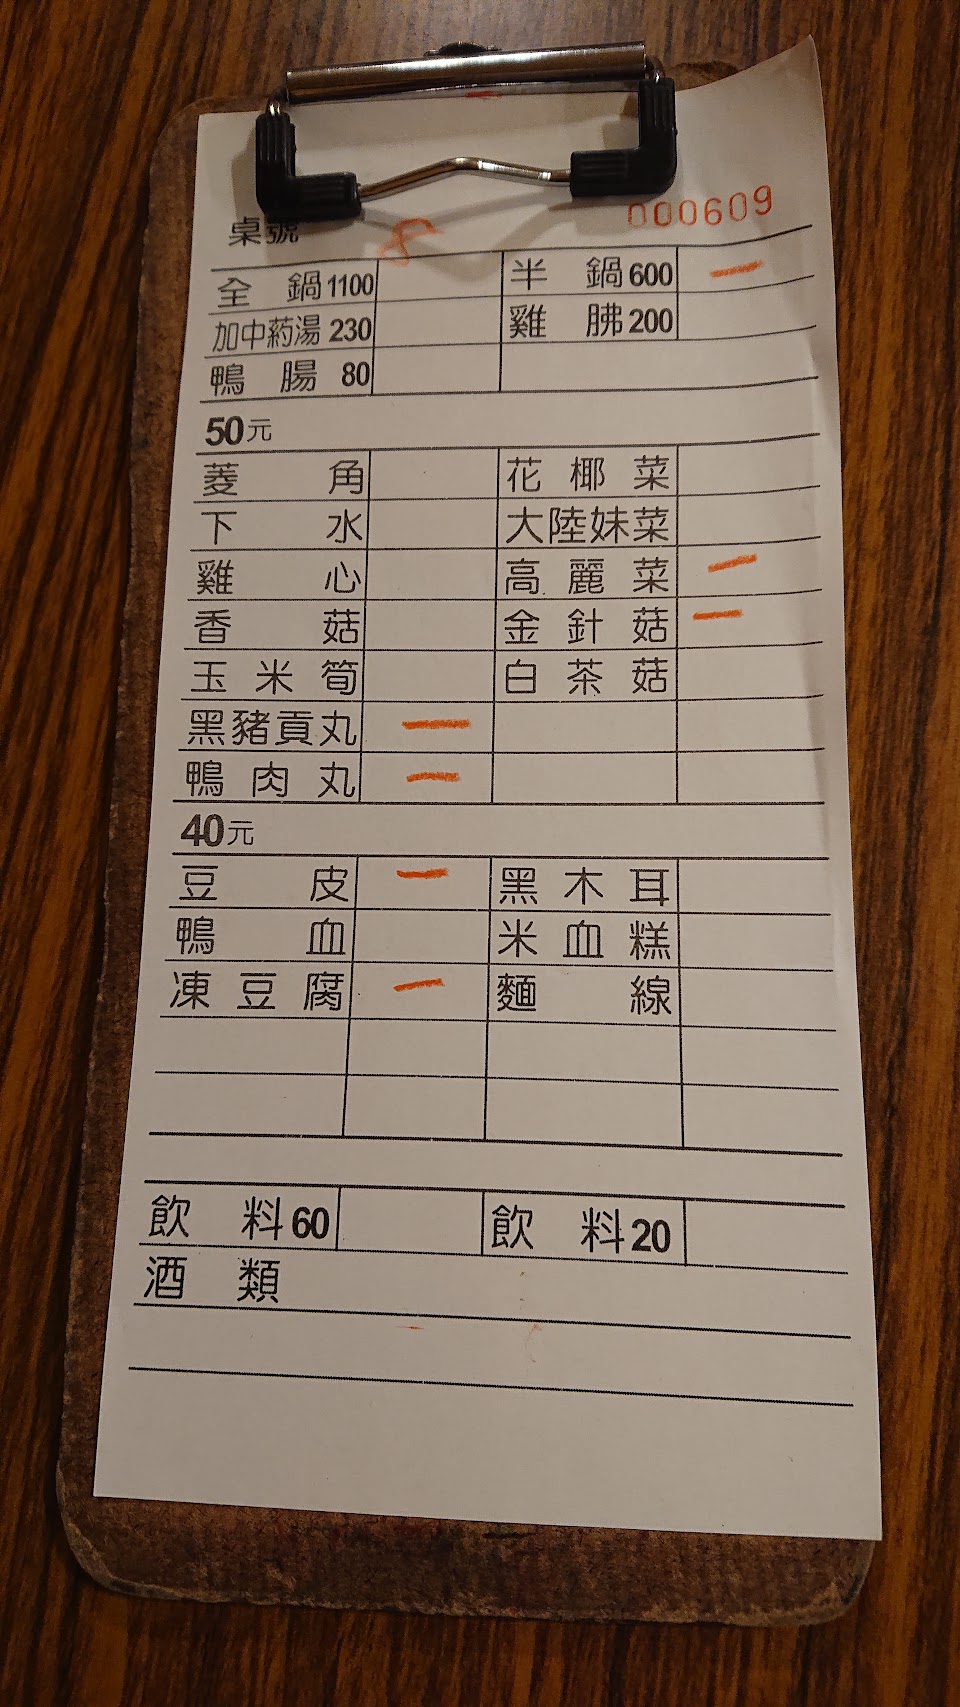 桌號 8 000609
全鍋1100 半鍋600 一
加中葯湯230 雞胇200
鴨腸80
50元
菱角 花椰菜
下水 大陸妹菜
雞心 高麗菜 一
香菇 金針菇 一
玉米筍 白茶菇
黑豬貢丸 一
鴨肉丸 一
40元
豆皮 一 黑木耳
鴨血 米血糕
凍豆腐 一 麵線
飲料60 飲料20
酒類